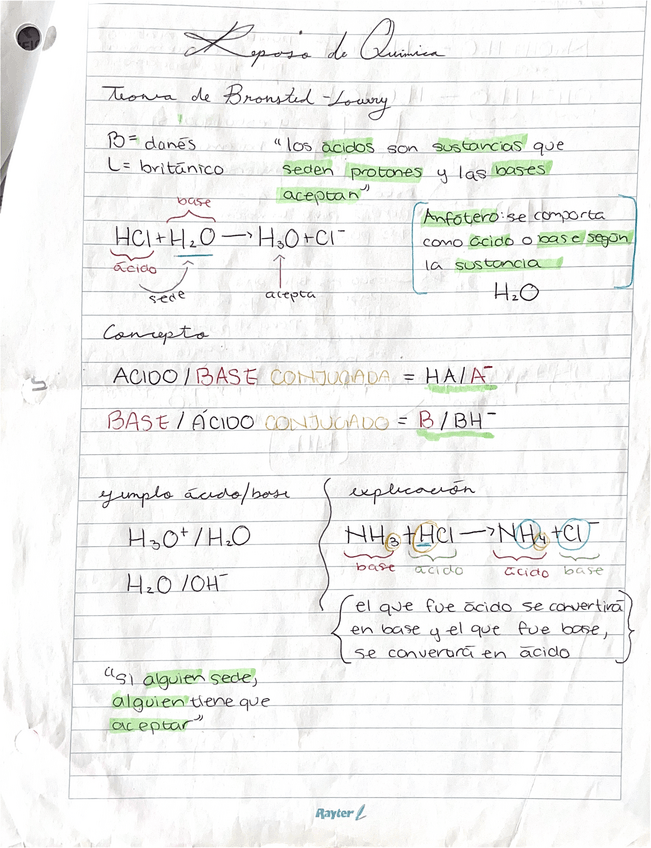 Reposo de Química
Teoria de Bronsted-Lowry
B= danés
L= británico
"los ácidos son sustancias que
seden protones y las bases
aceptan"
base
HCl + H₂O → H₃O + Cl⁻
ácido
sede
acepta
Anfótero: se comporta
como ácido o base según
la sustancia
H₂O
Concepto
ACIDO / BASE CONJUGADA = HA/A⁻
BASE / ÁCIDO CONJUGADO = B / BH⁻
ejemplo ácido/base
H₃O⁺ / H₂O
H₂O / OH⁻
explicación
NH₃ + HCl → NH₄ + Cl⁻
base ácido ácido base
el que fue ácido se convertirá
en base y el que fue base,
se converará en ácido
"Si alguien sede,
alguien tiene que
aceptar"
Rayter